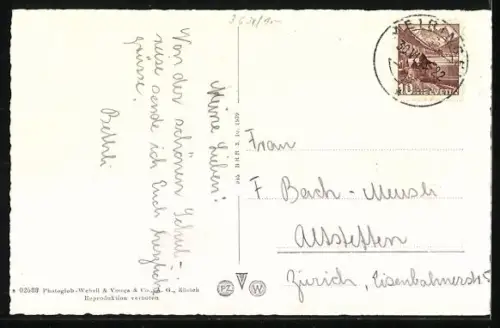 Meine Lieben!
Von der schönen Schul-
reise sende ich Euch herzliche
grüsse.
Bethli
Frau
F. Bach-Meusli
Altstetten
Zürich, Eisenbahnerstr. 5
10 HELVETIA
Photoglob-Wehrli & Vouga & Co., A. G., Zürich
Reproduktion verboten
PZ W